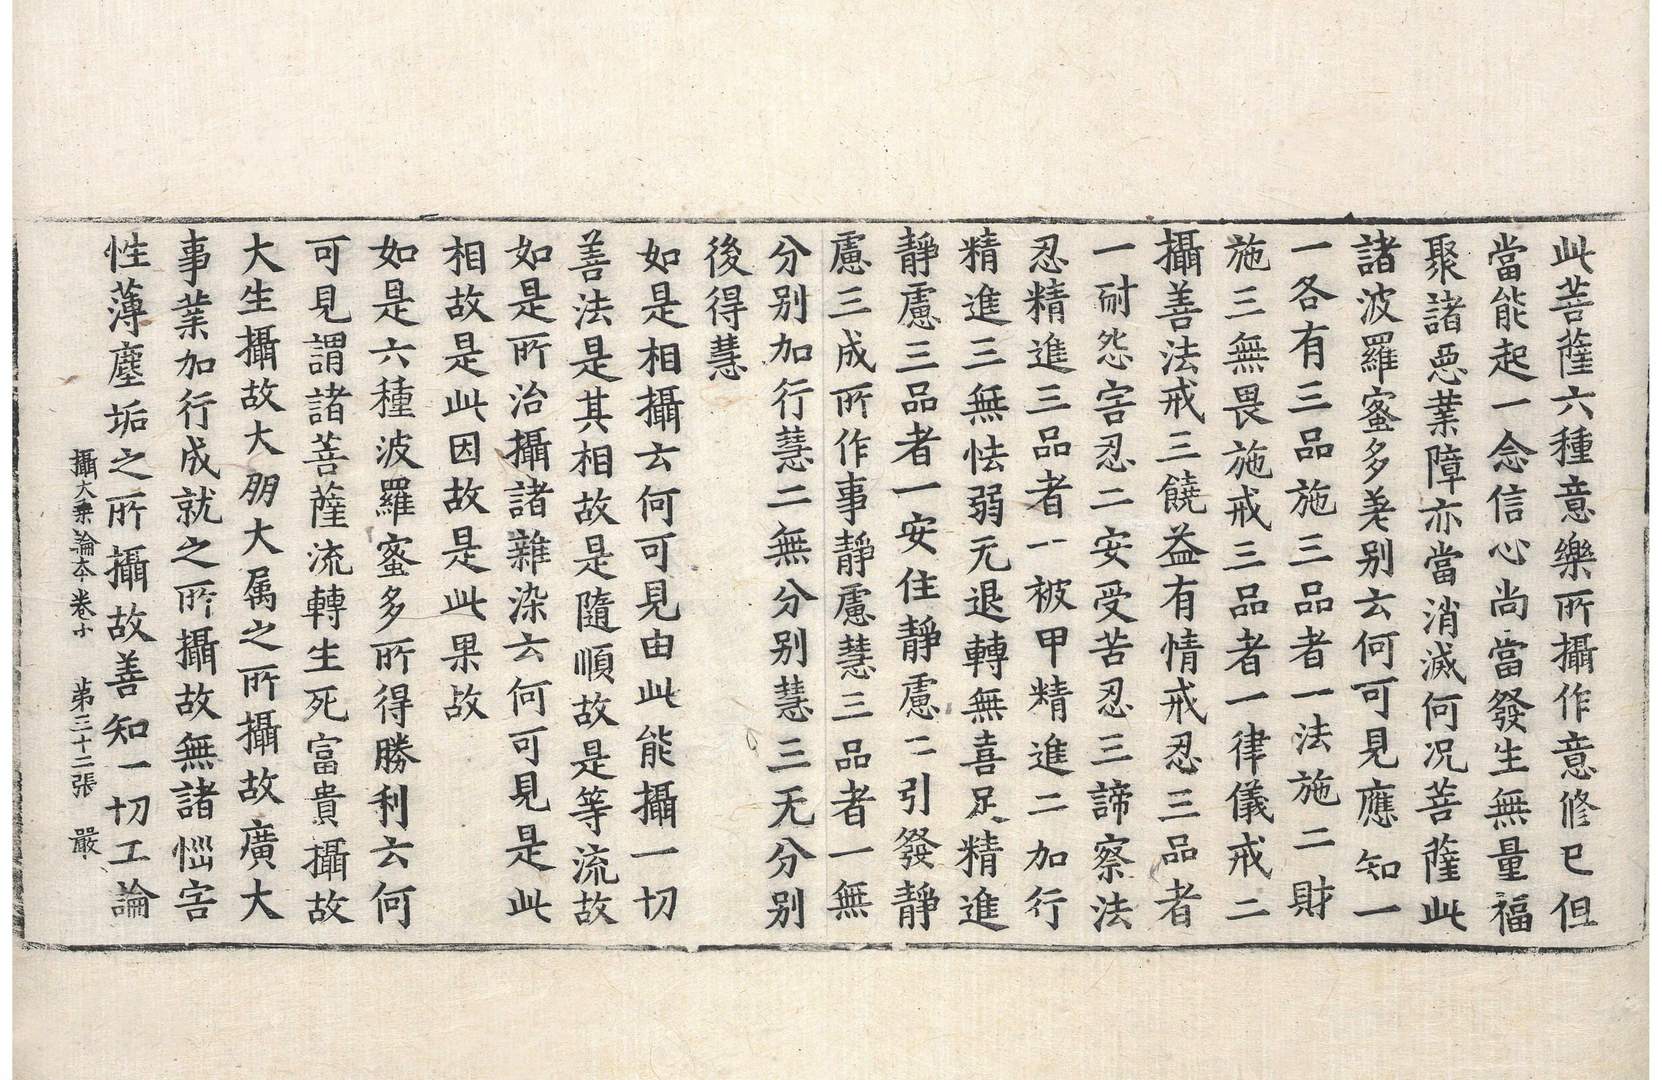 此菩薩六種意樂所攝作意修已但
當能起一念信心尚當發生無量福
聚諸惡業障亦當消滅何况菩薩此
諸波羅蜜多差别云何可見應知一
一各有三品施三品者一法施二財
施三無畏施戒三品者一律儀戒二
攝善法戒三饒益有情戒忍三品者
一耐怨害忍二安受苦忍三諦察法
忍精進三品者一被甲精進二加行
精進三無怯弱无退轉無喜足精進
靜慮三品者一安住靜慮二引發靜
慮三成所作事靜慮慧三品者一無
分别加行慧二無分别慧三无分别
後得慧
如是相攝云何可見由此能攝一切
善法是其相故是隨順故是等流故
如是所治攝諸雜染云何可見是此
相故是此因故是此果故
如是六種波羅蜜多所得勝利云何
可見謂諸菩薩流轉生死富貴攝故
大生攝故大朋大属之所攝故廣大
事業加行成就之所攝故無諸惱害
性薄塵垢之所攝故善知一切工論
攝大乘論本卷中 第三十二張 嚴